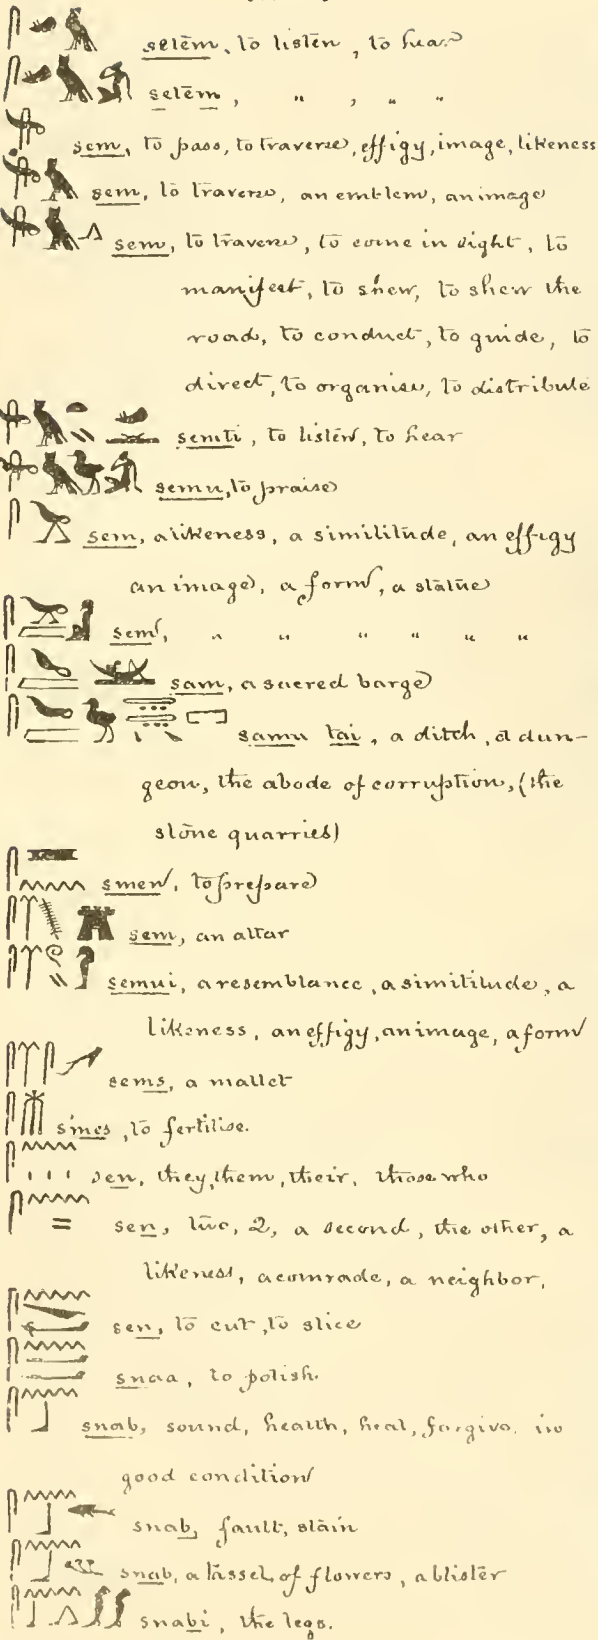 setem, to listen, to hear
setem, " , " "
sem, to pass, to traverse, effigy, image, likeness
sem, to traverse, an emblem, an image
sem, to traverse, to come in sight, to
manifest, to shew, to shew the
road, to conduct, to guide, to
direct, to organise, to distribute
semti, to listen, to hear
semu, to praise
sem, a likeness, a similitude, an effigy
an image, a form, a statue
sem, " " " " " "
sam, a sacred barge
samu tai, a ditch, a dun-
geon, the abode of corruption, (the
stone quarries)
smen, to prepare
sem, an altar
semui, a resemblance, a similitude, a
likeness, an effigy, an image, a form
sems, a mallet
smes, to fertilise.
sen, they, them, their, those who
sen, two, 2, a second, the other, a
likeness, a comrade, a neighbor,
sen, to cut, to slice
snaa, to polish.
snab, sound, health, heal, forgive, in
good condition
snab, fault, stain
snab, a tassel of flowers, a blister
snabi, the legs.